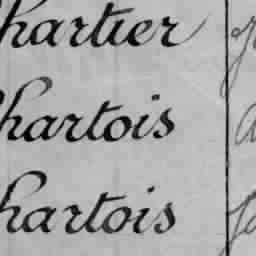 hartier
hartois
hartois